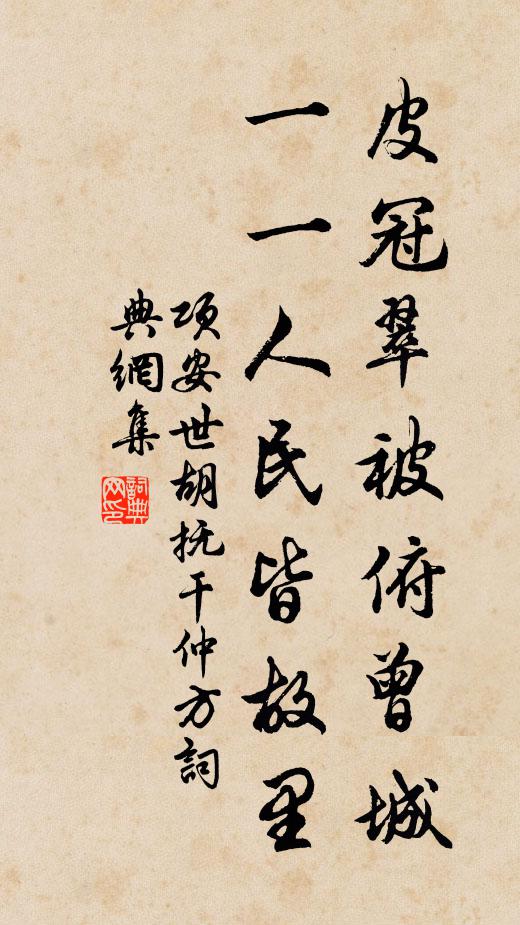 皮冠翠被俯曾城
一一人民皆故里
项安世胡抚干仲方詞
典網集
詞典网印